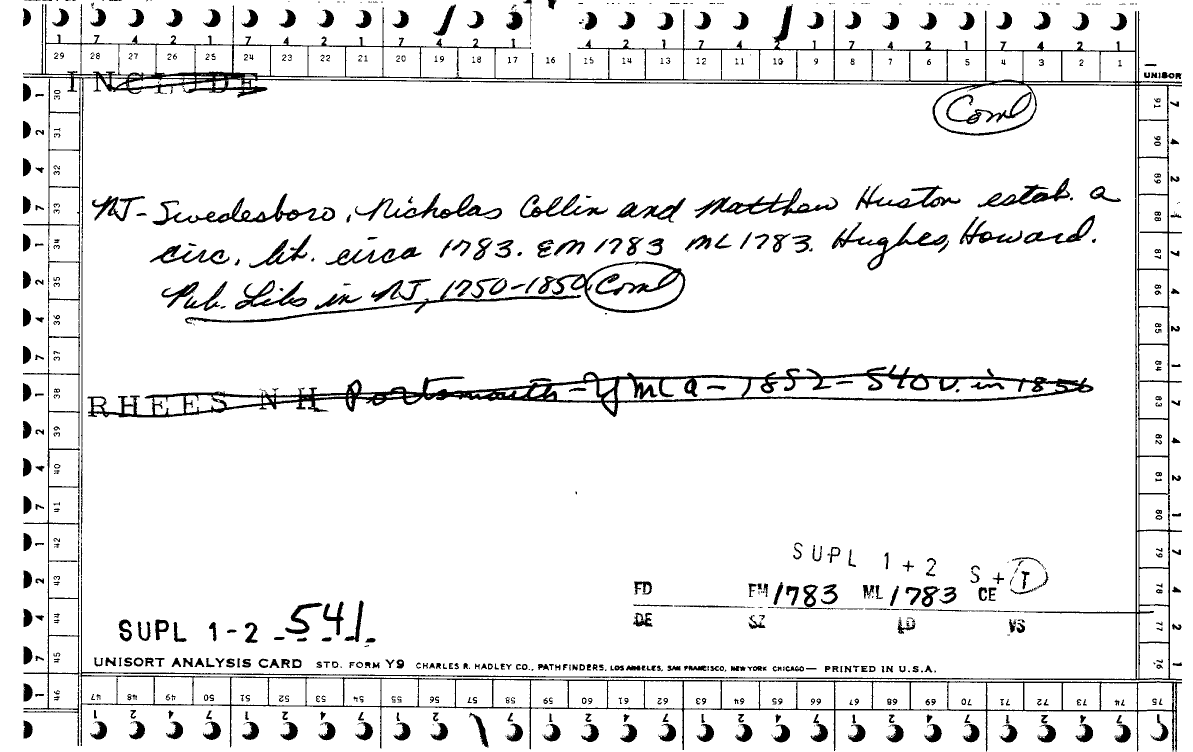 1 7 4 2 1 7 4 2 1 7 4 2 1 4 2 1 7 4 2 1 7 4 2 1 7 4 2 1
29 28 27 26 25 24 23 22 21 20 19 18 17 16 15 14 13 12 11 10 9 8 7 6 5 4 3 2 1
UNISOR
INCLUDE
Coml
NJ-Swedesboro, Nicholas Collin and Matthew Huston estab. a
circ. lib. circa 1783. EM 1783 ML 1783. Hughes, Howard.
Pub. Libs in NJ, 1750-1850 Coml
RHEES NH Portsmouth-YMCA-1852-540 v. in 1856
SUPL 1+2 S+T
FD EM 1783 ML 1783 CE
DE SZ LD VS
SUPL 1-2 -541-
UNISORT ANALYSIS CARD STD. FORM Y9 CHARLES R. HADLEY CO., PATHFINDERS, LOS ANGELES, SAN FRANCISCO, NEW YORK CHICAGO— PRINTED IN U.S.A.
1 2 4 7 1 2 4 7 1 2 4 7 1 2 4 7
30 31 32 33 34 35 36 37 38 39 40 41 42 43 44 45 46
91 90 89 88 87 86 85 84 83 82 81 80 79 78 77 76 75
47 48 49 50 51 52 53 54 55 56 57 58 59 60 61 62 63 64 65 66 67 68 69 70 71 72 73 74 75